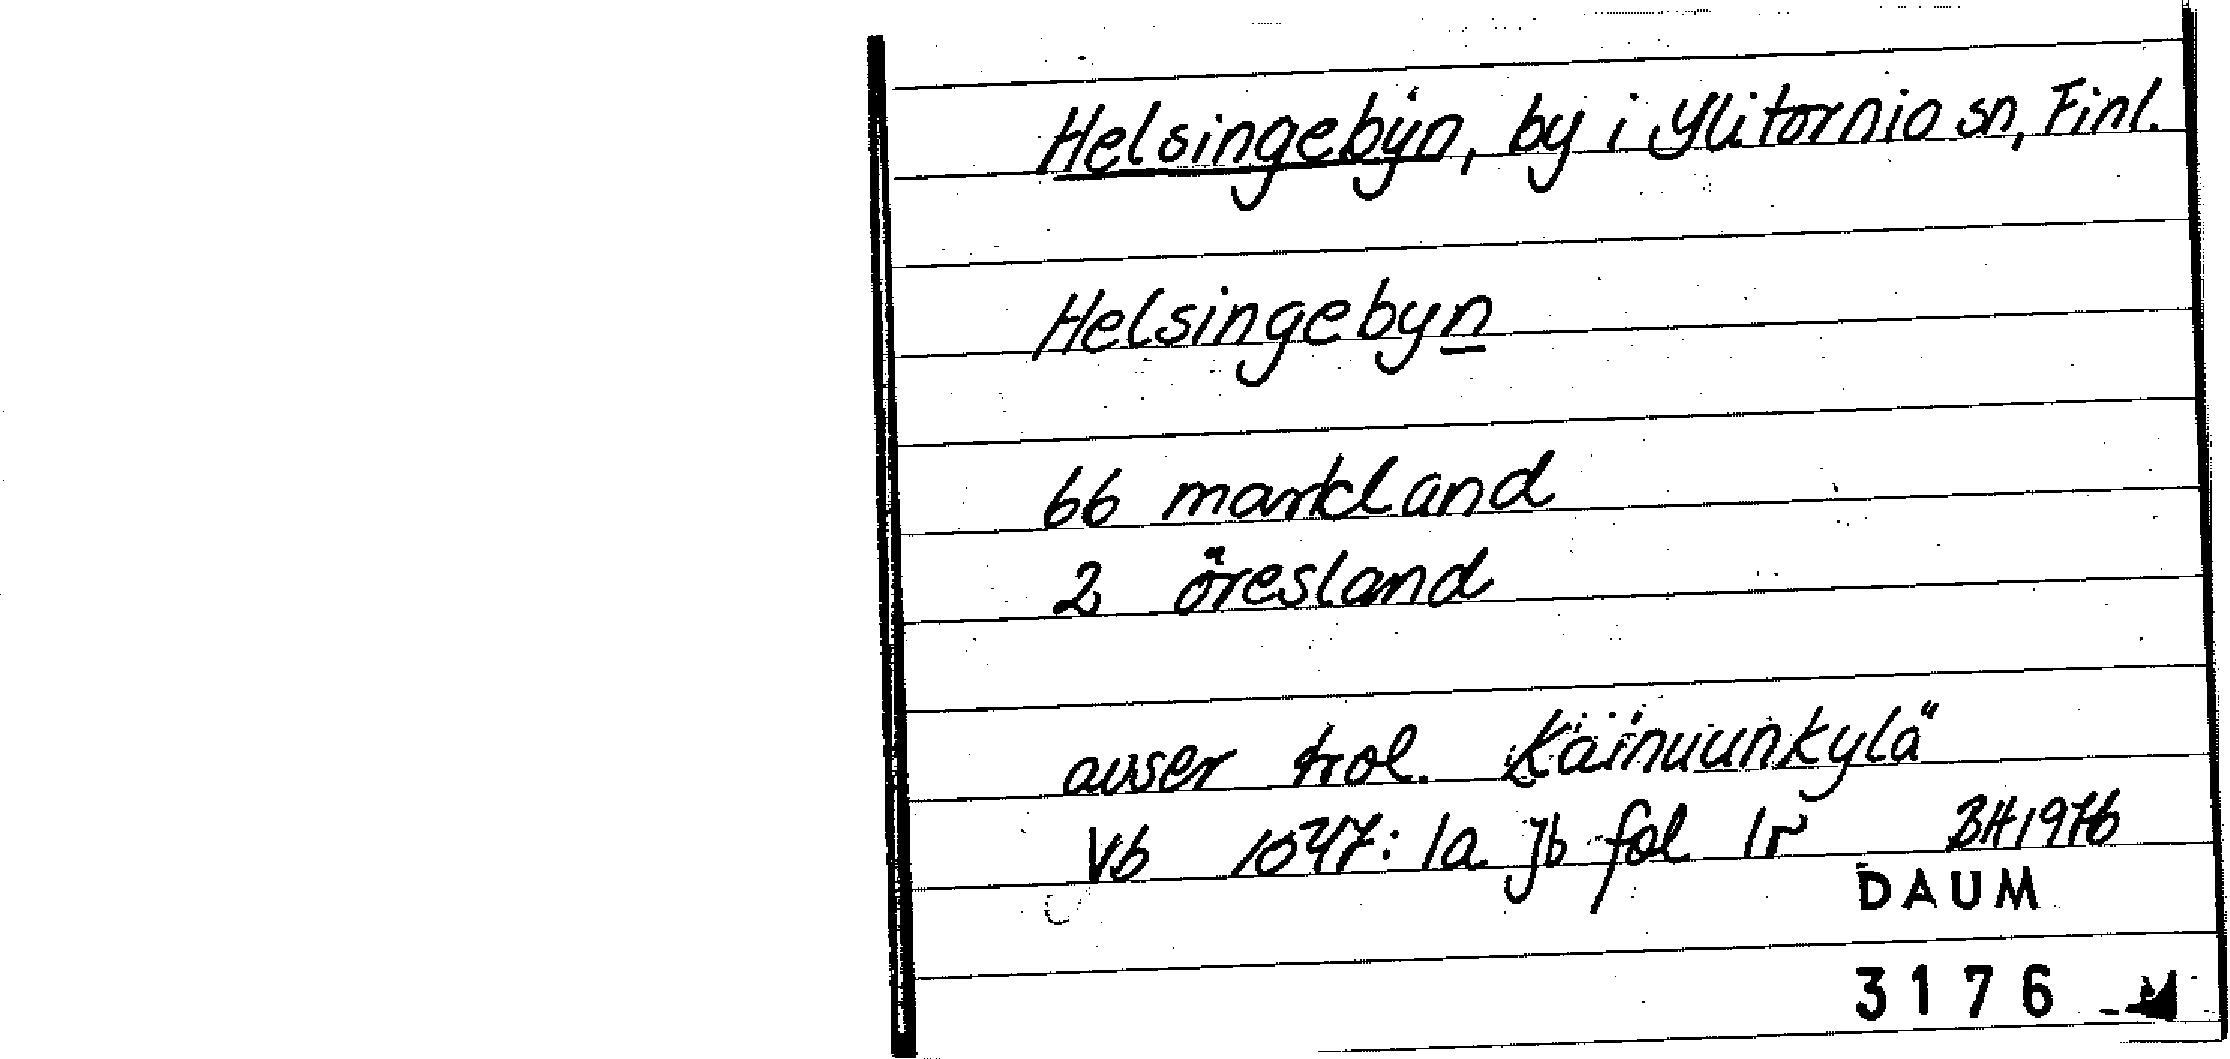 Helsingebyn, by i Ylitornio sn, Finl.
Helsingebyn
66 markland
2 öresland
avser trol. Käinuunkylä
Vb 1547: 1a Jb fol 1r BH 1976
DAUM
3176